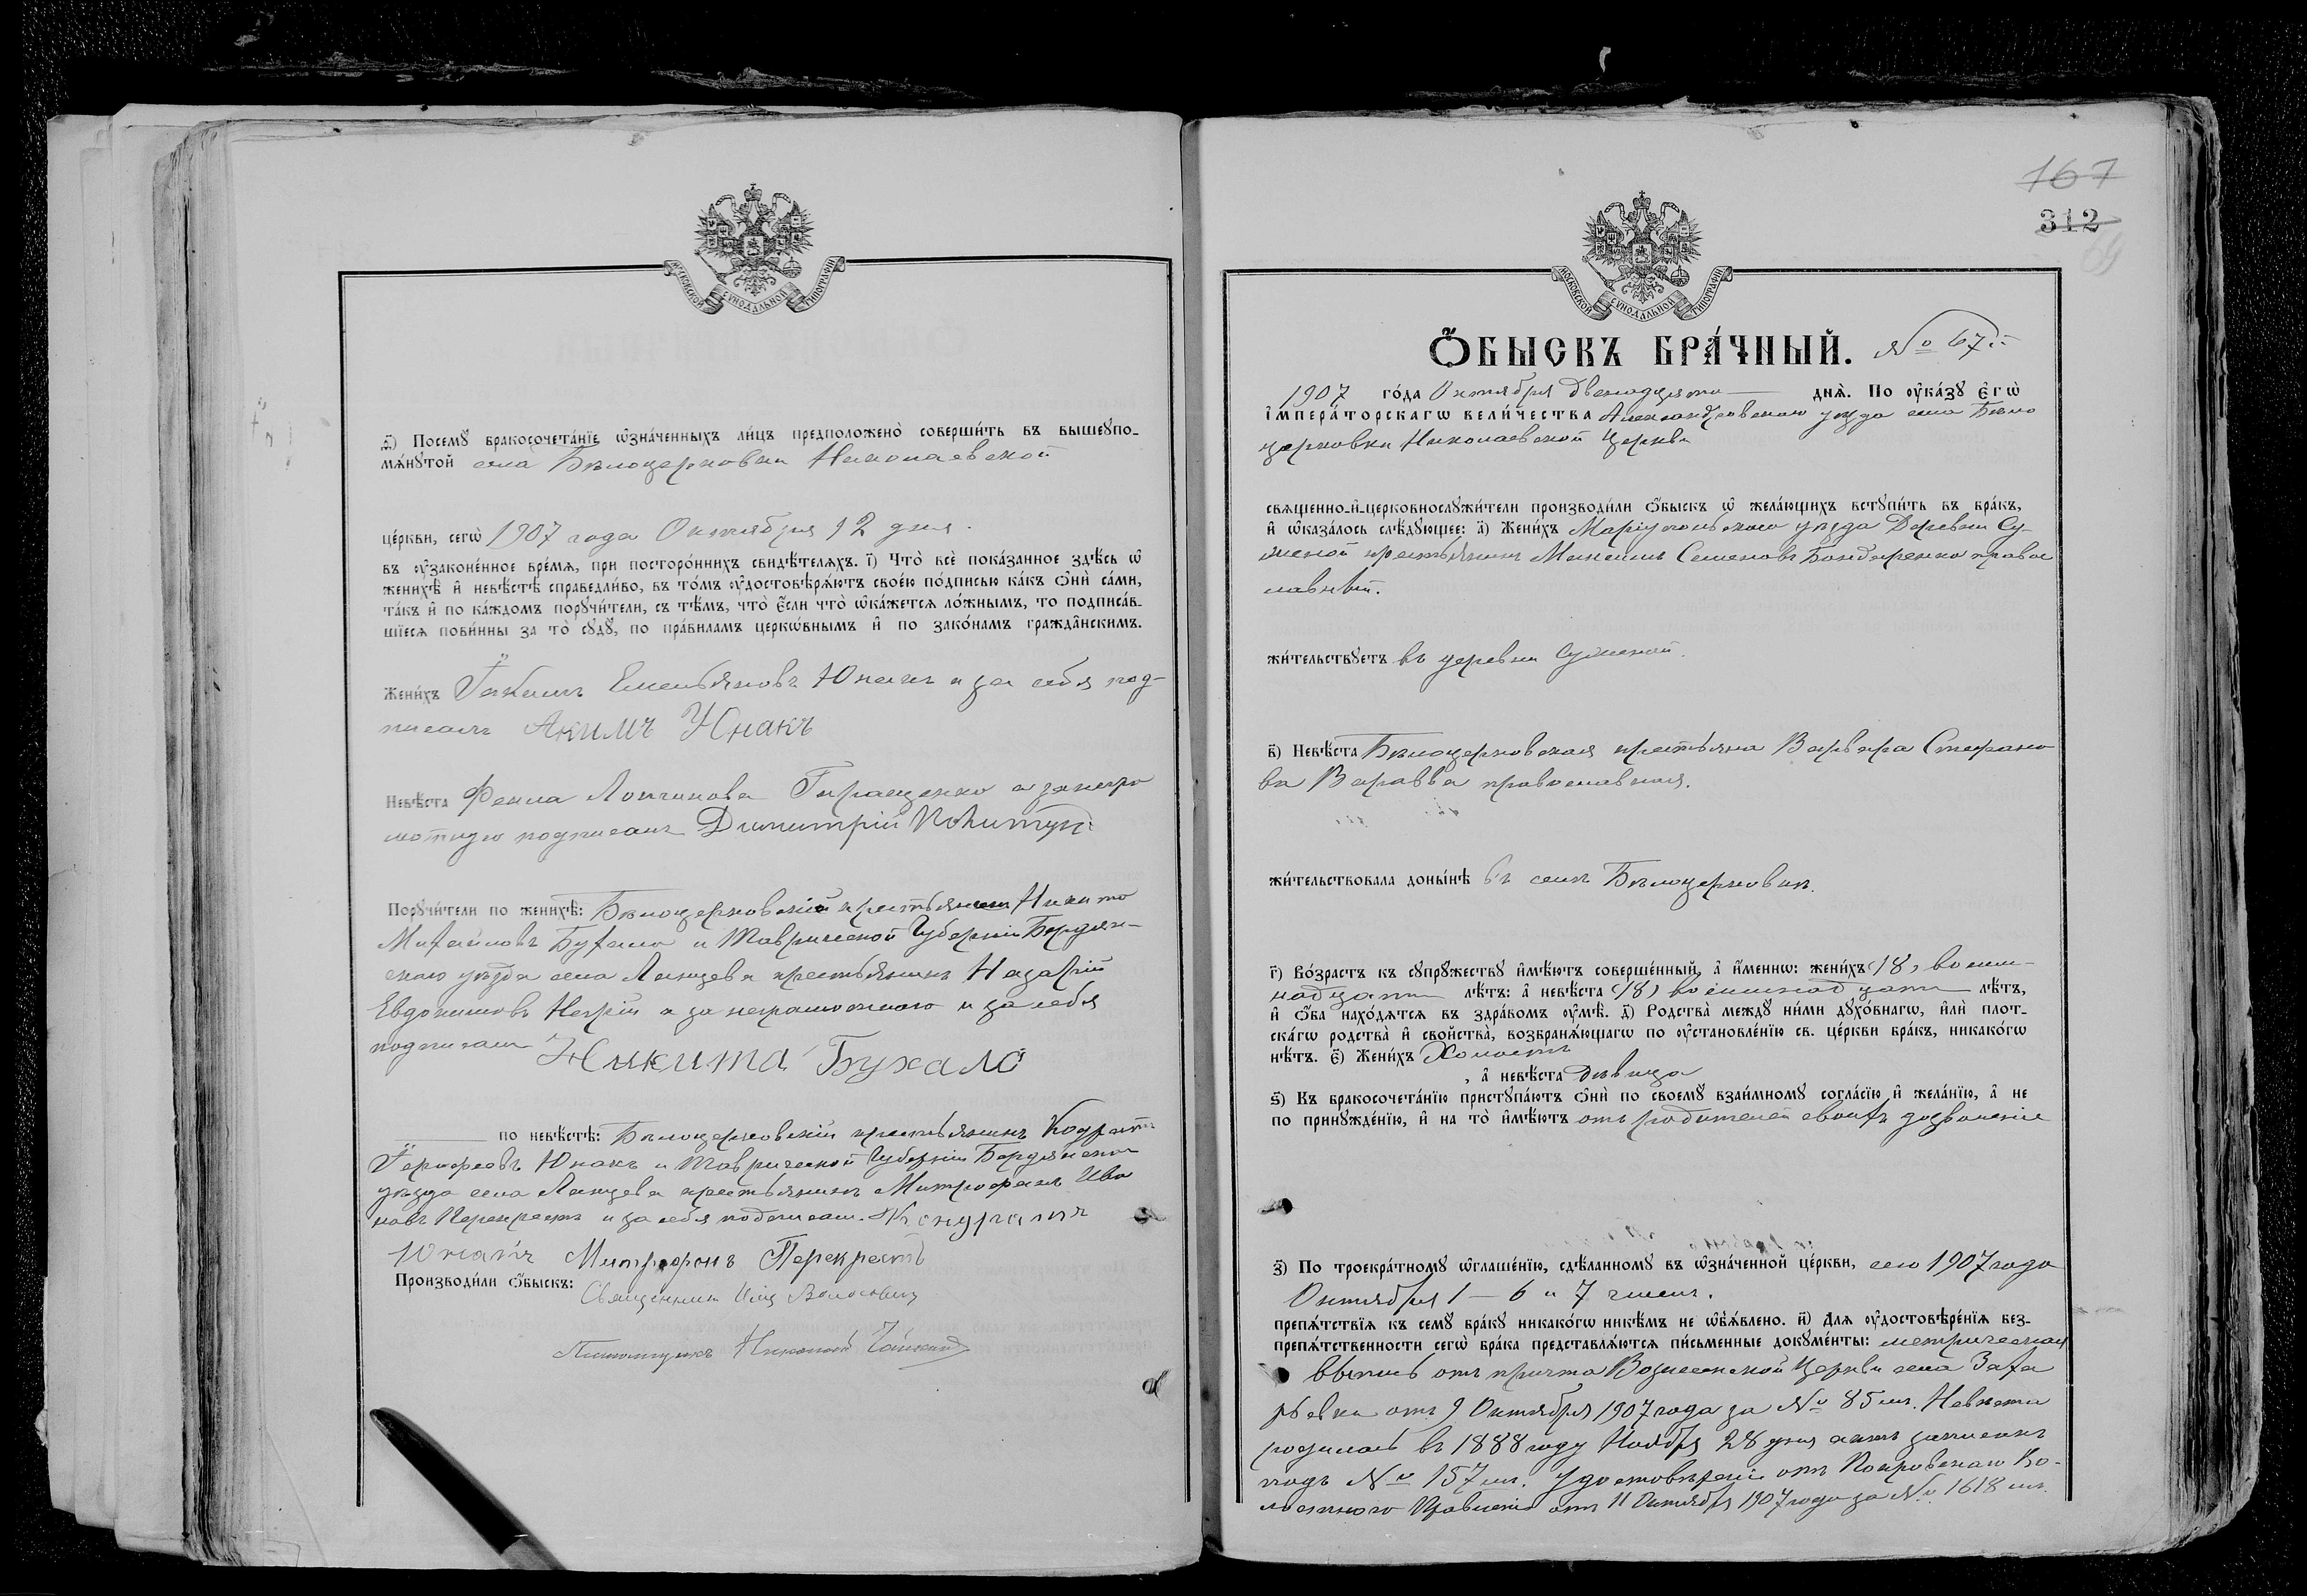 МОСКОВСКОЙ СѴНОДАЛЬНОЙ ТИПОГРАФІИ
д҃) Посемꙋ̀ бракосочета́нїе ѡ҆зна́ченныхъ ли́цъ предположено̀ соверши́ть въ вышеꙋпо-
мѧ́нꙋтой села Бѣлоцерковки Николаевской
це́ркви, сегѡ̀ 1907 года Октября 12 дня.
въ ѹ҆зако́ненное вре́мѧ, при посторо́ннихъ свидѣ́телѧхъ. і҃) Что̀ всѐ пока́занное здѣ́сь ѡ҆
женихѣ̀ и҆ невѣ́стѣ справедли́во, въ то́мъ ѹ҆достовѣрѧ́ютъ свое́ю по́дписью ка́къ ѻ҆нѝ са́ми,
та́къ и҆ по ка́ждомъ порꙋчи́тели, съ тѣ́мъ, что̀ є҆́сли что̀ ѡ҆ка́жетсѧ ло́жнымъ, то подписа́в-
шїесѧ пови́нны за то̀ сꙋдꙋ̀, по пра́виламъ церкѡ́внымъ и҆ по зако́намъ гражда̂нскимъ.
Жени́хъ Іакимъ Емельяновъ Юнакъ и за себя под-
писалъ Акимъ Юнакъ
Невѣ́ста Фекла Геращенко а за негра
мотную подписалъ Димитрій
Порꙋчи́тели по женихѣ̀: Бѣлоцерковскій крестьянин Никита
Михайловъ Бухало и Таврической Губерніи Бердян-
скаго уѣзда села крестьянинъ Назарій
Евдокимовъ а за неграмотнаго и за себя
подписалъ Никита Бухало
по невѣ́стѣ: Бѣлоцерковскій крестьянинъ Кодратъ
Юнакъ и Таврической Губерніи Бердянскаго
уѣзда села крестьянинъ Митрофанъ Ива
новъ Перекрестъ и за себя подписали. Кондратъ
Юнакъ Митрофонъ Перекрестъ
Производи́ли ѻ҆́быскъ: Священникъ
Псаломщикъ
167
312
МОСКОВСКОЙ СѴНОДАЛЬНОЙ ТИПОГРАФІИ
Ѻ҆́БЫСКЪ БРА́ЧНЫЙ. № 67й
1907 го́да Октября двенадцята днѧ̀. По ѹ҆ка́зꙋ є҆гѡ̀
і҆мпера́торскагѡ вели́чества Александровскаго уѣзда села Бѣло
церковки Николаевской Церкви
свѧще́нно-и҆-церковнослꙋжи́тели производи́ли ѻ҆́быскъ ѡ҆ жела́ющихъ встꙋпи́ть въ бра́къ,
и҆ ѡ҆каза́лось слѣ́дꙋющее: а҃) Жени́хъ Маріупольского уѣзда Деревни Су-
женой крестьянинъ Максимъ Семеновъ Бондаренко право
славный.
жи́тельствꙋетъ въ деревни Суженой.
в҃) Невѣ́ста Бѣлоцерковская крестьяна Варвара Стефано
ва Варавва православная.
жи́тельствовала доны́нѣ въ селѣ Бѣлоцерковкѣ.
г҃) Во́зрастъ къ сꙋпрꙋ́жествꙋ и҆мѣ́ютъ соверше́нный, а҆ и҆́меннѡ: жени́хъ (18) восем-
надцати лѣ́тъ: а҆ невѣ́ста (18) восемнадцати лѣ́тъ,
и҆ ѻ҆́ба нахо́дѧтсѧ въ здра́вомъ ѹ҆мѣ̀. д҃) Родства̀ междꙋ̀ ни́ми дꙋхо́внагѡ, и҆лѝ пло́т-
скагѡ родства̀ и҆ свойства̀, возбранѧ́ющагѡ по ѹ҆становле́нїю св. це́ркви бра́къ, никако́гѡ
нѣ́тъ. є҃) Жени́хъ Холостъ
, а҆ невѣ́ста Дѣвица
ѕ҃) Къ бракосочета́нїю пристꙋпа́ютъ ѻ҆нѝ по своемꙋ̀ взаи́мномꙋ согла́сїю и҆ жела́нїю, а҆ не
по принꙋжде́нїю, и҆ на то̀ и҆мѣ́ютъ отъ родителей своихъ дозволеніе
з҃) По троекра́тномꙋ ѡ҆глаше́нїю, сдѣ́ланномꙋ въ ѡ҆зна́ченной це́ркви, сего 1907 года
Октября 1 — 6 и 7 числъ.
препѧ́тствїѧ къ семꙋ̀ бра́кꙋ никако́гѡ никѣ́мъ не ѡ҆б̾ѧ́влено. и҃) Длѧ ѹ҆достовѣре́нїѧ без-
препѧ́тственности сегѡ̀ бра́ка представлѧ́ютсѧ пи́сьменные докꙋме́нты: метрическая
выпись отъ причта Вознесенской Церкви села Заха
рьевки отъ 9 Октября 1907 года за № 85мъ. Невѣста
родилась въ 1888 году Ноября 28 дня актъ записанъ
подъ № 157мъ. Удостовѣреніе отъ Покровскаго Во-
лостного Правленія отъ 11 Октября 1907 года за № 1618мъ.